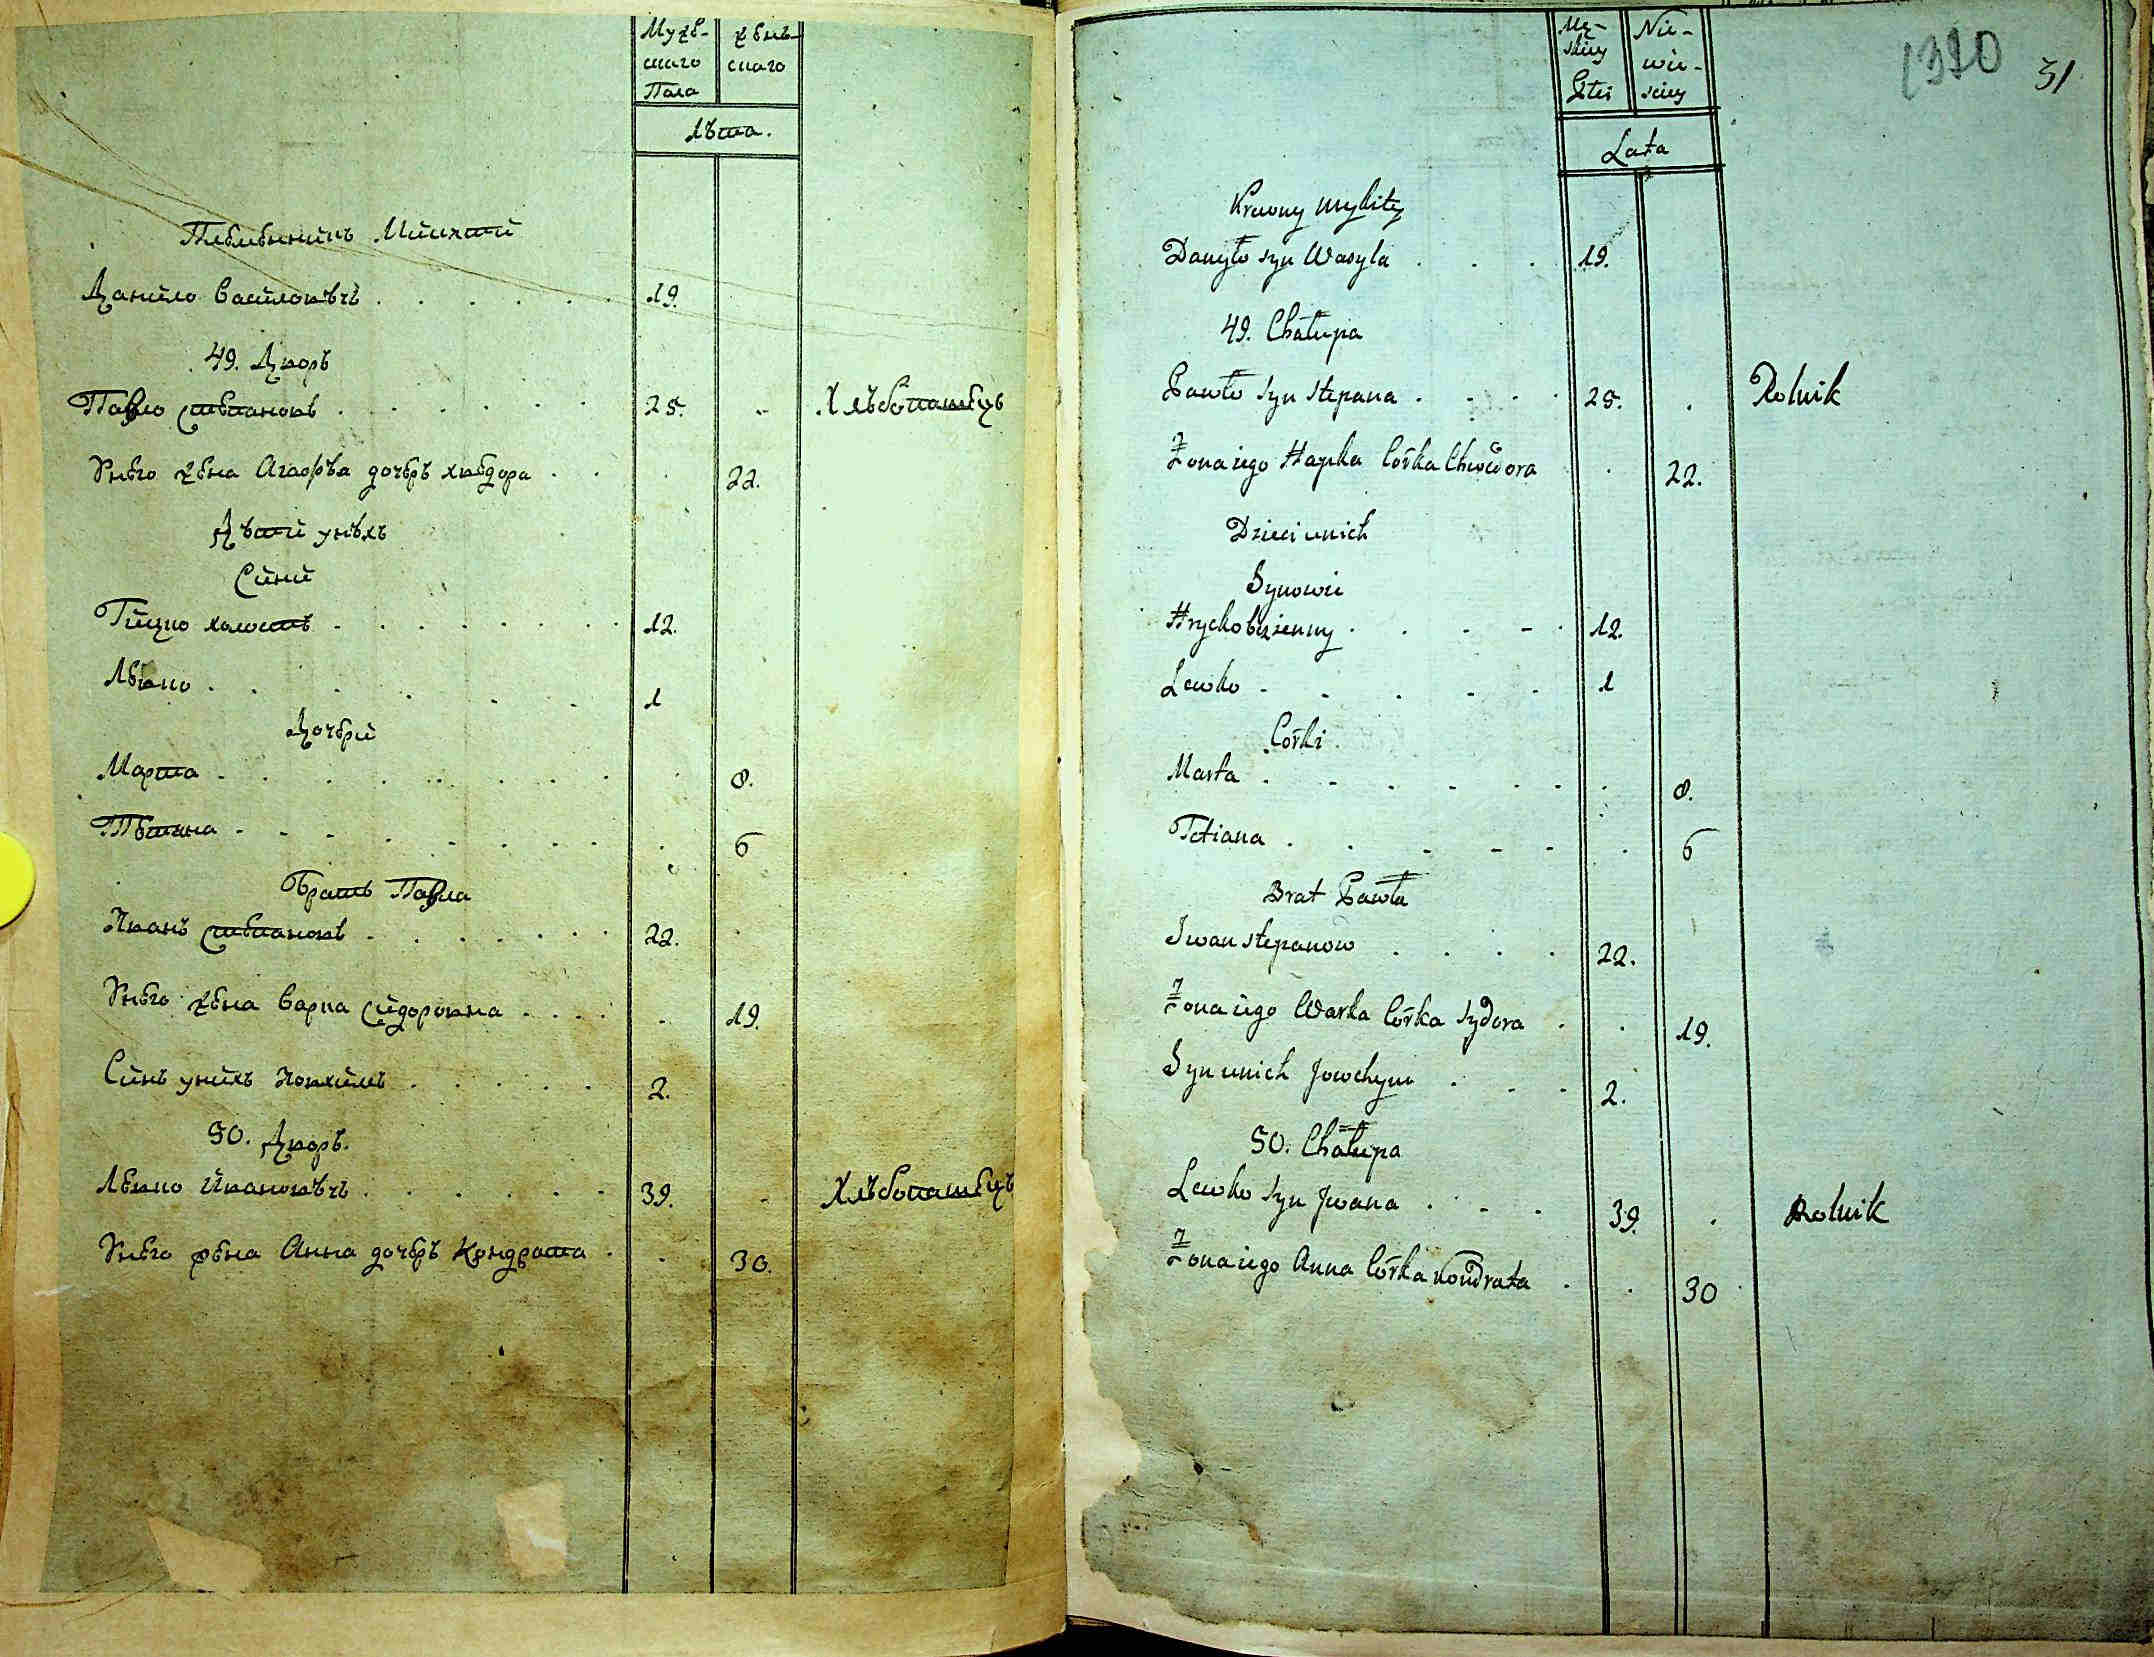 Мужe-
скаго
Пола
жень-
скаго
лѣта.
Племѣнникъ Микити
Данило Василовѣчъ . . . . . . 19.
49. Дворъ
Павло Степановъ . . . . . . 25. Хлѣбопашецъ
У него жена Агафѣа дочеръ хведора . . . 22.
Дѣти у нѣхъ
Сини
Гицко холостъ . . . . . . . 12.
Левко . . . . . . 1
Дочери
Марта . . . . . . . . 8.
Тетяна - - - . . . . . . 6
Братъ Павла
Иванъ Степановъ . . . . . . . 22.
У него жена Варка Сидоровна . . . . . 19.
Синъ у нихъ Иовхимъ . . . . . 2.
50. Дворъ.
Левко Ивановѣчъ . . . . . . 39. Хлѣбопашецъ
У него жена Анна дочеръ Кондрата . . 30.
Mę-
skiey
Płci
Nie-
wie-
sciey
Lata
1390
31
Krewny Mykity
Danyło syn Wasyla . . . 19.
49. Chałupa
Pawło syn stepana . - - . 25. . Rolnik
Żona iego Hapka Córka Chwedora . 22.
Dzieci u nich
Synowie
Hrycko bezienny . . . - . 12.
Lewko - - . - . 1
Córki
Marta . - . - . . . 8.
Tetiana . . - - - . 6
Brat Pawła
Iwan stepanow . . . . 22.
Żona iego Warka Córka sydora . . 19.
Syn u nich Jowchym . - - 2.
50. Chałupa
Lewko syn Jwana . - . 39. . Rolnik
Żona iego Anna Córka Kondrata . . 30